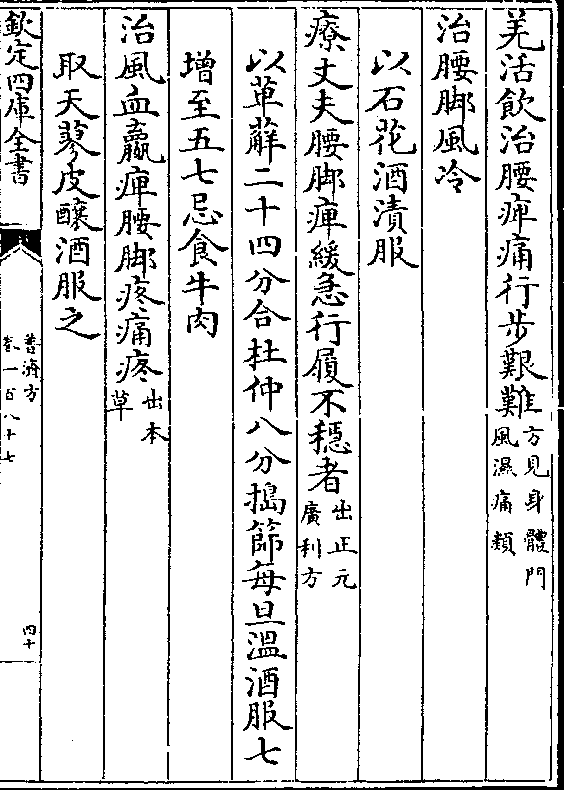 羌活飲治腰痺痛行步艱難方見身體門風濕痛類
治腰脚風冷
以石花酒漬服
療丈夫腰脚痺緩急行履不穩者出正元廣利方
以萆薢二十四分合杜仲八分搗篩每旦溫酒服七
增至五七忌食牛肉
治風血羸痺腰脚疼痛疼出本草
取天蓼皮釀酒服之
欽定四庫全書
普濟方
卷一百八十七
四十